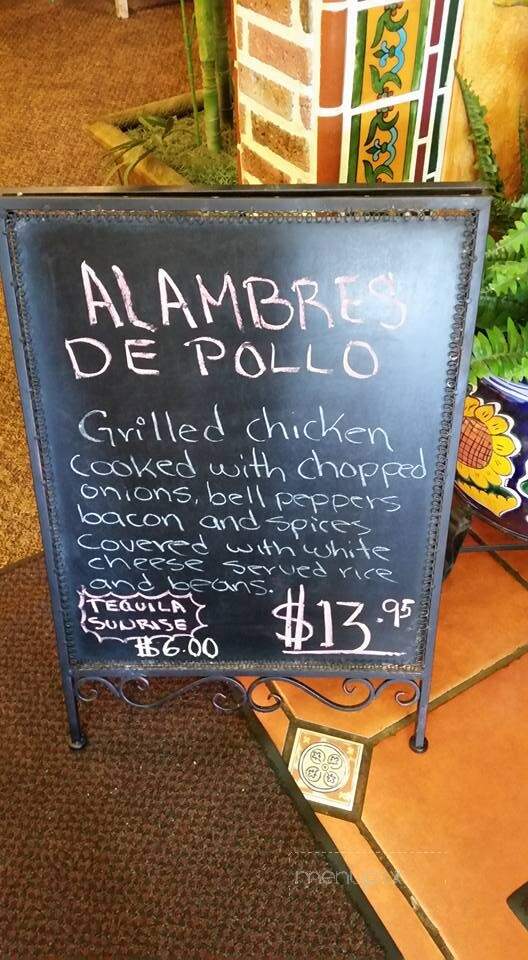 ALAMBRES
DE POLLO
Grilled chicken
cooked with chopped
onions, bell peppers
bacon and spices
Covered with white
cheese served rice
and beans.
TEQUILA
SUNRISE
$6.00
$13.95